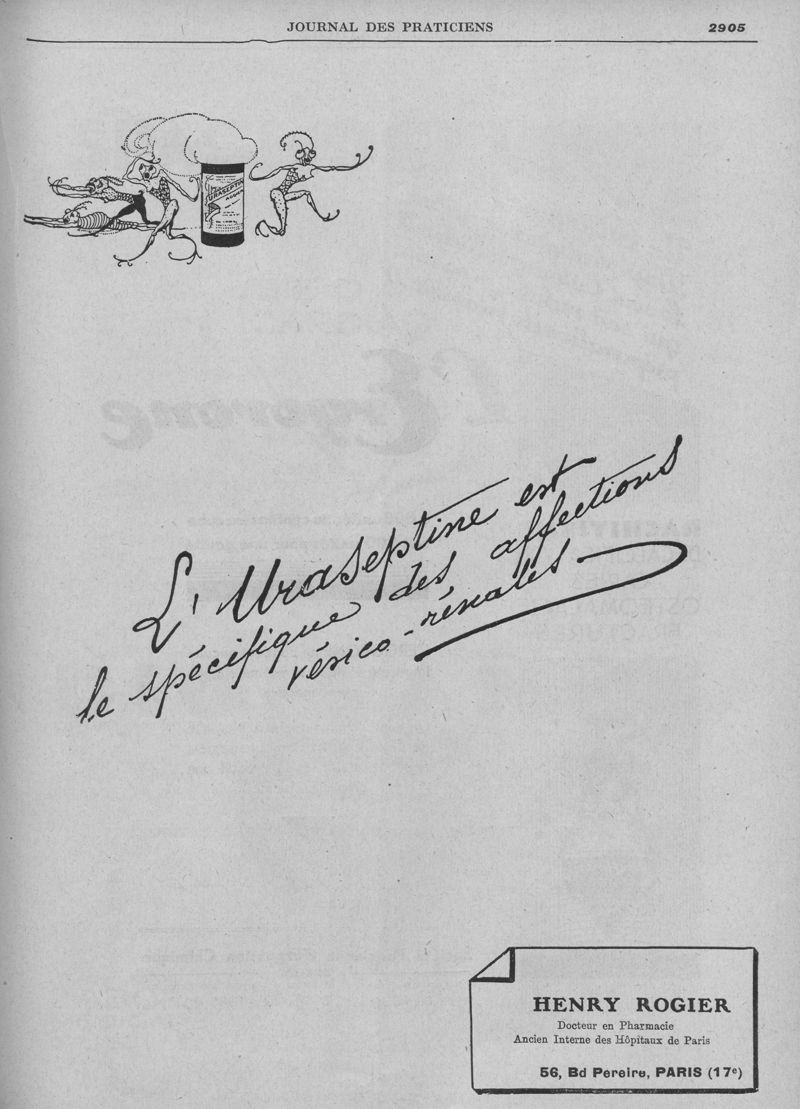 JOURNAL DES PRATICIENS
2905
URASEPTINE
ROGIER
L'Uraseptine est
le spécifique des affections
vésico-rénales
HENRY ROGIER
Docteur en Pharmacie
Ancien Interne des Hôpitaux de Paris
56, Bd Pereire, PARIS (17e)